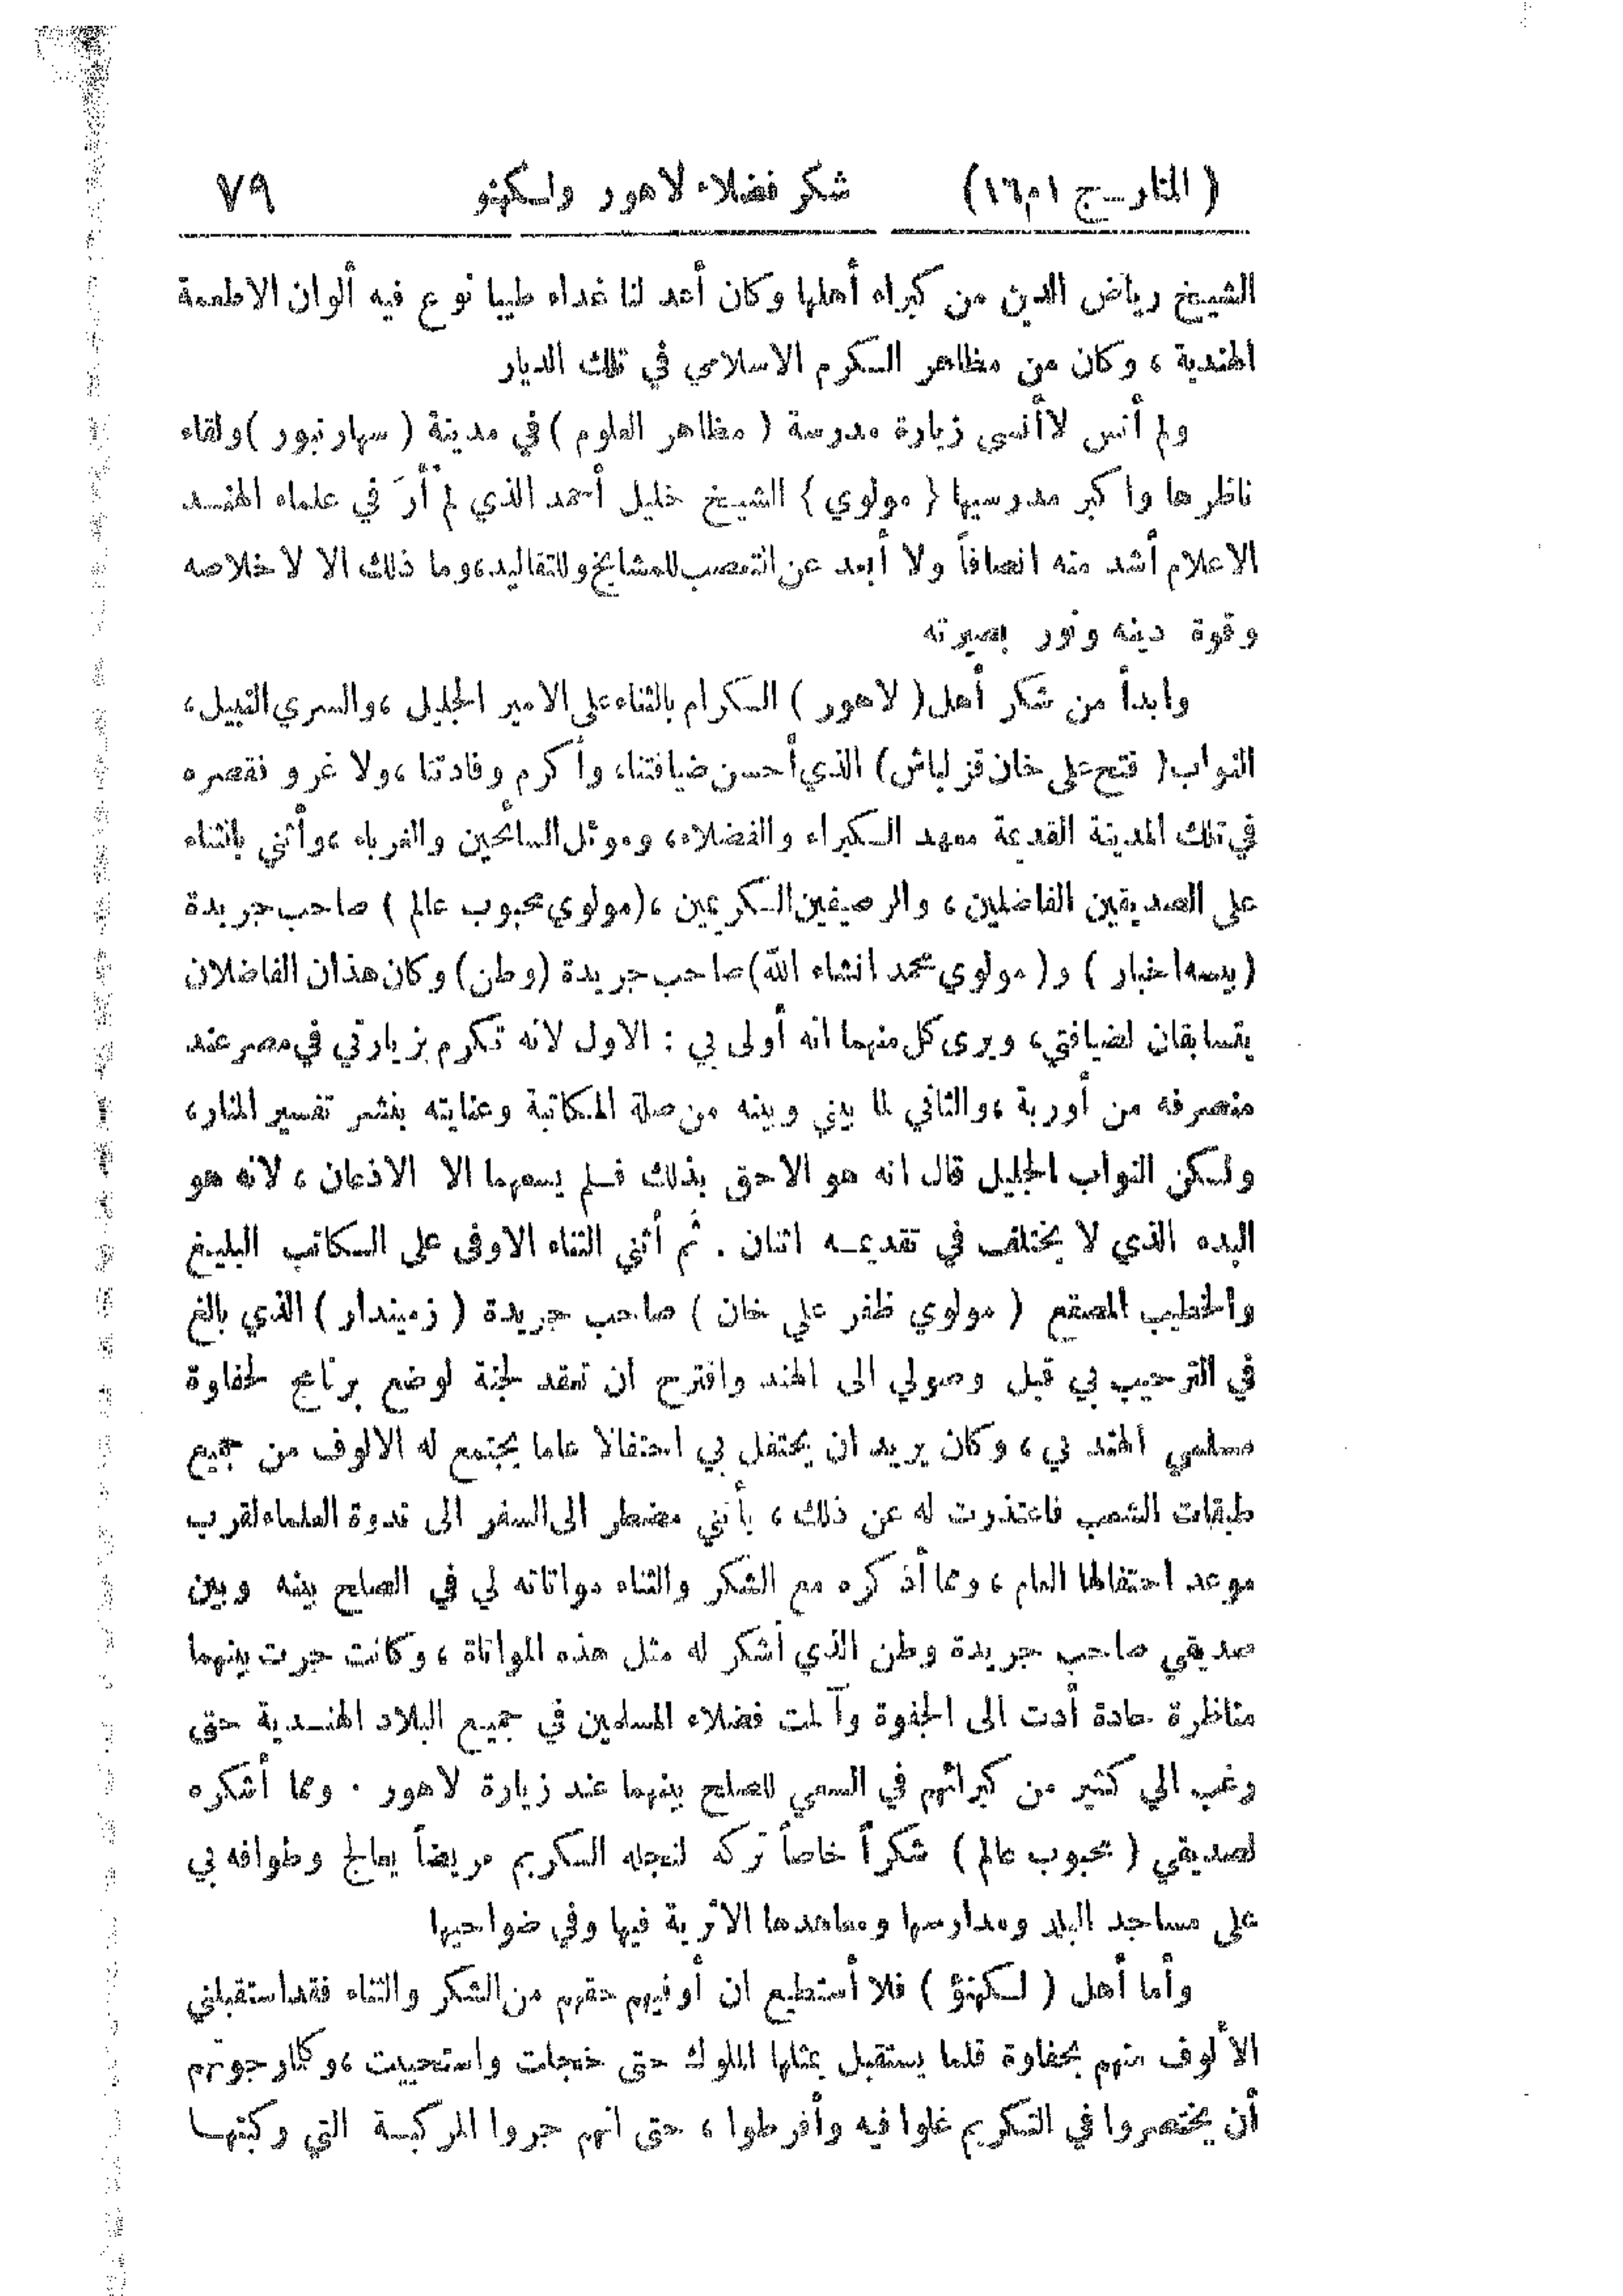 ( المنار ـ ج ١ م ١٦ ) شكر فضلاء لاهور ولسكهنو ٧٩
الشيخ رياض الدين من كبراء أهلها وكان أعد لنا غداء طيبا نوع فيه ألوان الاطعمة
الهندية ، وكان من مظاهر الكرم الاسلامي في تلك الديار
ولم أنس لاأنسى زيارة مدرسة ( مظاهر العلوم ) في مدينة ( سهارنبور ) ولقاء
ناظرها وأكبر مدرسيها ( مولوي ) الشيخ خليل أحمد الذي لم أرَ في علماء الهند
الاعلام أشد منه انصافاً ولا أبعد عن التعصب للمشايخ وللتقاليد، وما ذلك الا لاخلاصه
وقوة دينه ونور بصيرته
وابدأ من شكر أهل ( لاهور ) الكرام بالثناء على الامير الجليل ، والسري النبيل ،
النواب ( فتح على خان قزلباش ) الذي أحسن ضيافتنا، وأكرم وفادتنا ، ولا غرو فقصره
في تلك المدينة القديمة معهد الكبراء والفضلاء، وموئل السائحين والغرباء ، وأثني بالثناء
على الصديقين الفاضلين ، والرصيفين الكريمين ، (مولوي محبوب عالم ) صاحب جريدة
( بيسه اخبار ) و ( مولوي محمد انشاء الله) صاحب جريدة (وطن) وكان هذان الفاضلان
يتسابقان لضيافتي، ويرى كل منهما انه أولى بي : الاول لانه تكرم بزيارتي في مصر عند
منصرفه من أوربة ، والثاني لما بيني وبينه من صلة المكاتبة وعنايته بنشر تفسير المنار ،
ولكن النواب الجليل قال انه هو الاحق بذلك فلم يسعهما الا الاذعان ، لانه هو
البدء الذي لا يختلف في تقديمه اثنان . ثم أثني الثناء الاوفى على الكاتب البليغ
والخطيب المصقع ( مولوي ظفر علي خان ) صاحب جريدة ( زميندار ) الذي بالغ
في الترحيب بي قبل وصولي الى الهند واقترح ان تعقد لجنة لوضع برنامج لحفاوة
مسلمي الهند بي ، وكان يريد ان يحتفل بي احتفالا عاما يجتمع له الالوف من جميع
طبقات الشعب فاعتذرت له عن ذلك ، بأنني مضطر الى السفر الى ندوة العلماء لقرب
موعد احتفالها العام ، ومما أذكره مع الشكر والثناء مواتاته لي في الصلح بينه وبين
صديقي صاحب جريدة وطن الذي أشكر له مثل هذه المواتاة ، وكانت جرت بينهما
مناظرة حادة أدت الى الجفوة وآلمت فضلاء المسلمين في جميع البلاد الهندية حتى
رغب الي كثير من كبرائهم في السعي للصلح بينهما عند زيارة لاهور . ومما أشكره
لصديقي ( محبوب عالم ) شكراً خاصاً تركه لنجله الكريم مريضاً يعالج وطوافه بي
على مساجد البلد ومدارسها ومعاهدها الاثرية فيها وفي ضواحيها
وأما أهل ( لكهنؤ ) فلا أستطيع ان أوفيهم حقهم من الشكر والثناء فقد استقبلني
الألوف منهم بحفاوة قلما يستقبل بمثلها الملوك حتى خجلت واستحييت ، وكلما رجوتهم
أن يختصروا في التكريم غلوا فيه وأفرطوا ، حتى انهم جروا المركبة التي ركبتها